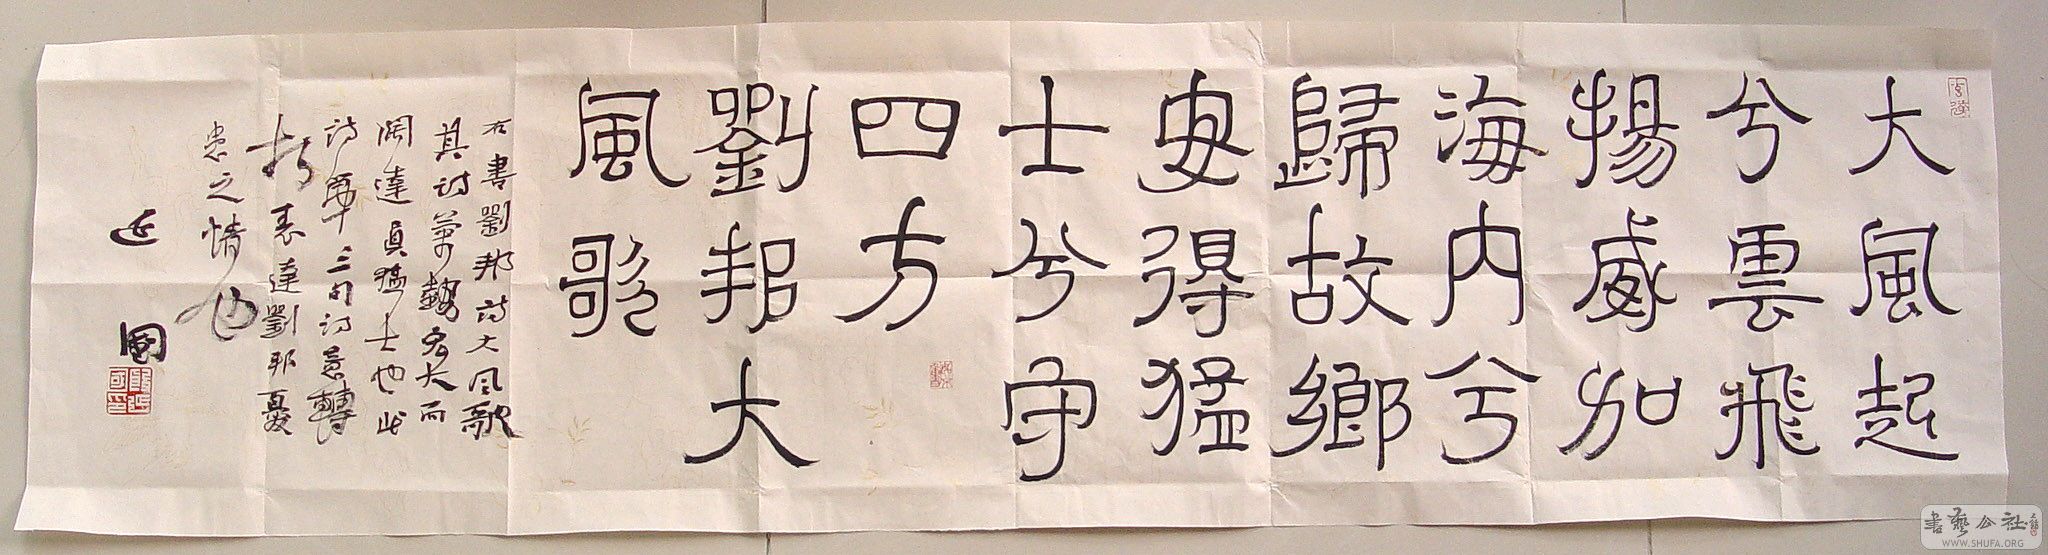 大風起
兮雲飛
揚威加
海内兮
歸故鄉
安得猛
士兮守
四方
劉邦大
風歌
右書劉邦詩大風歌
其詩氣勢宏大而
闊達真猛士也此
詩三句詩意轉
折表達劉邦憂
患之情也
延國
書藝公社
WWW.SHUFA.ORG